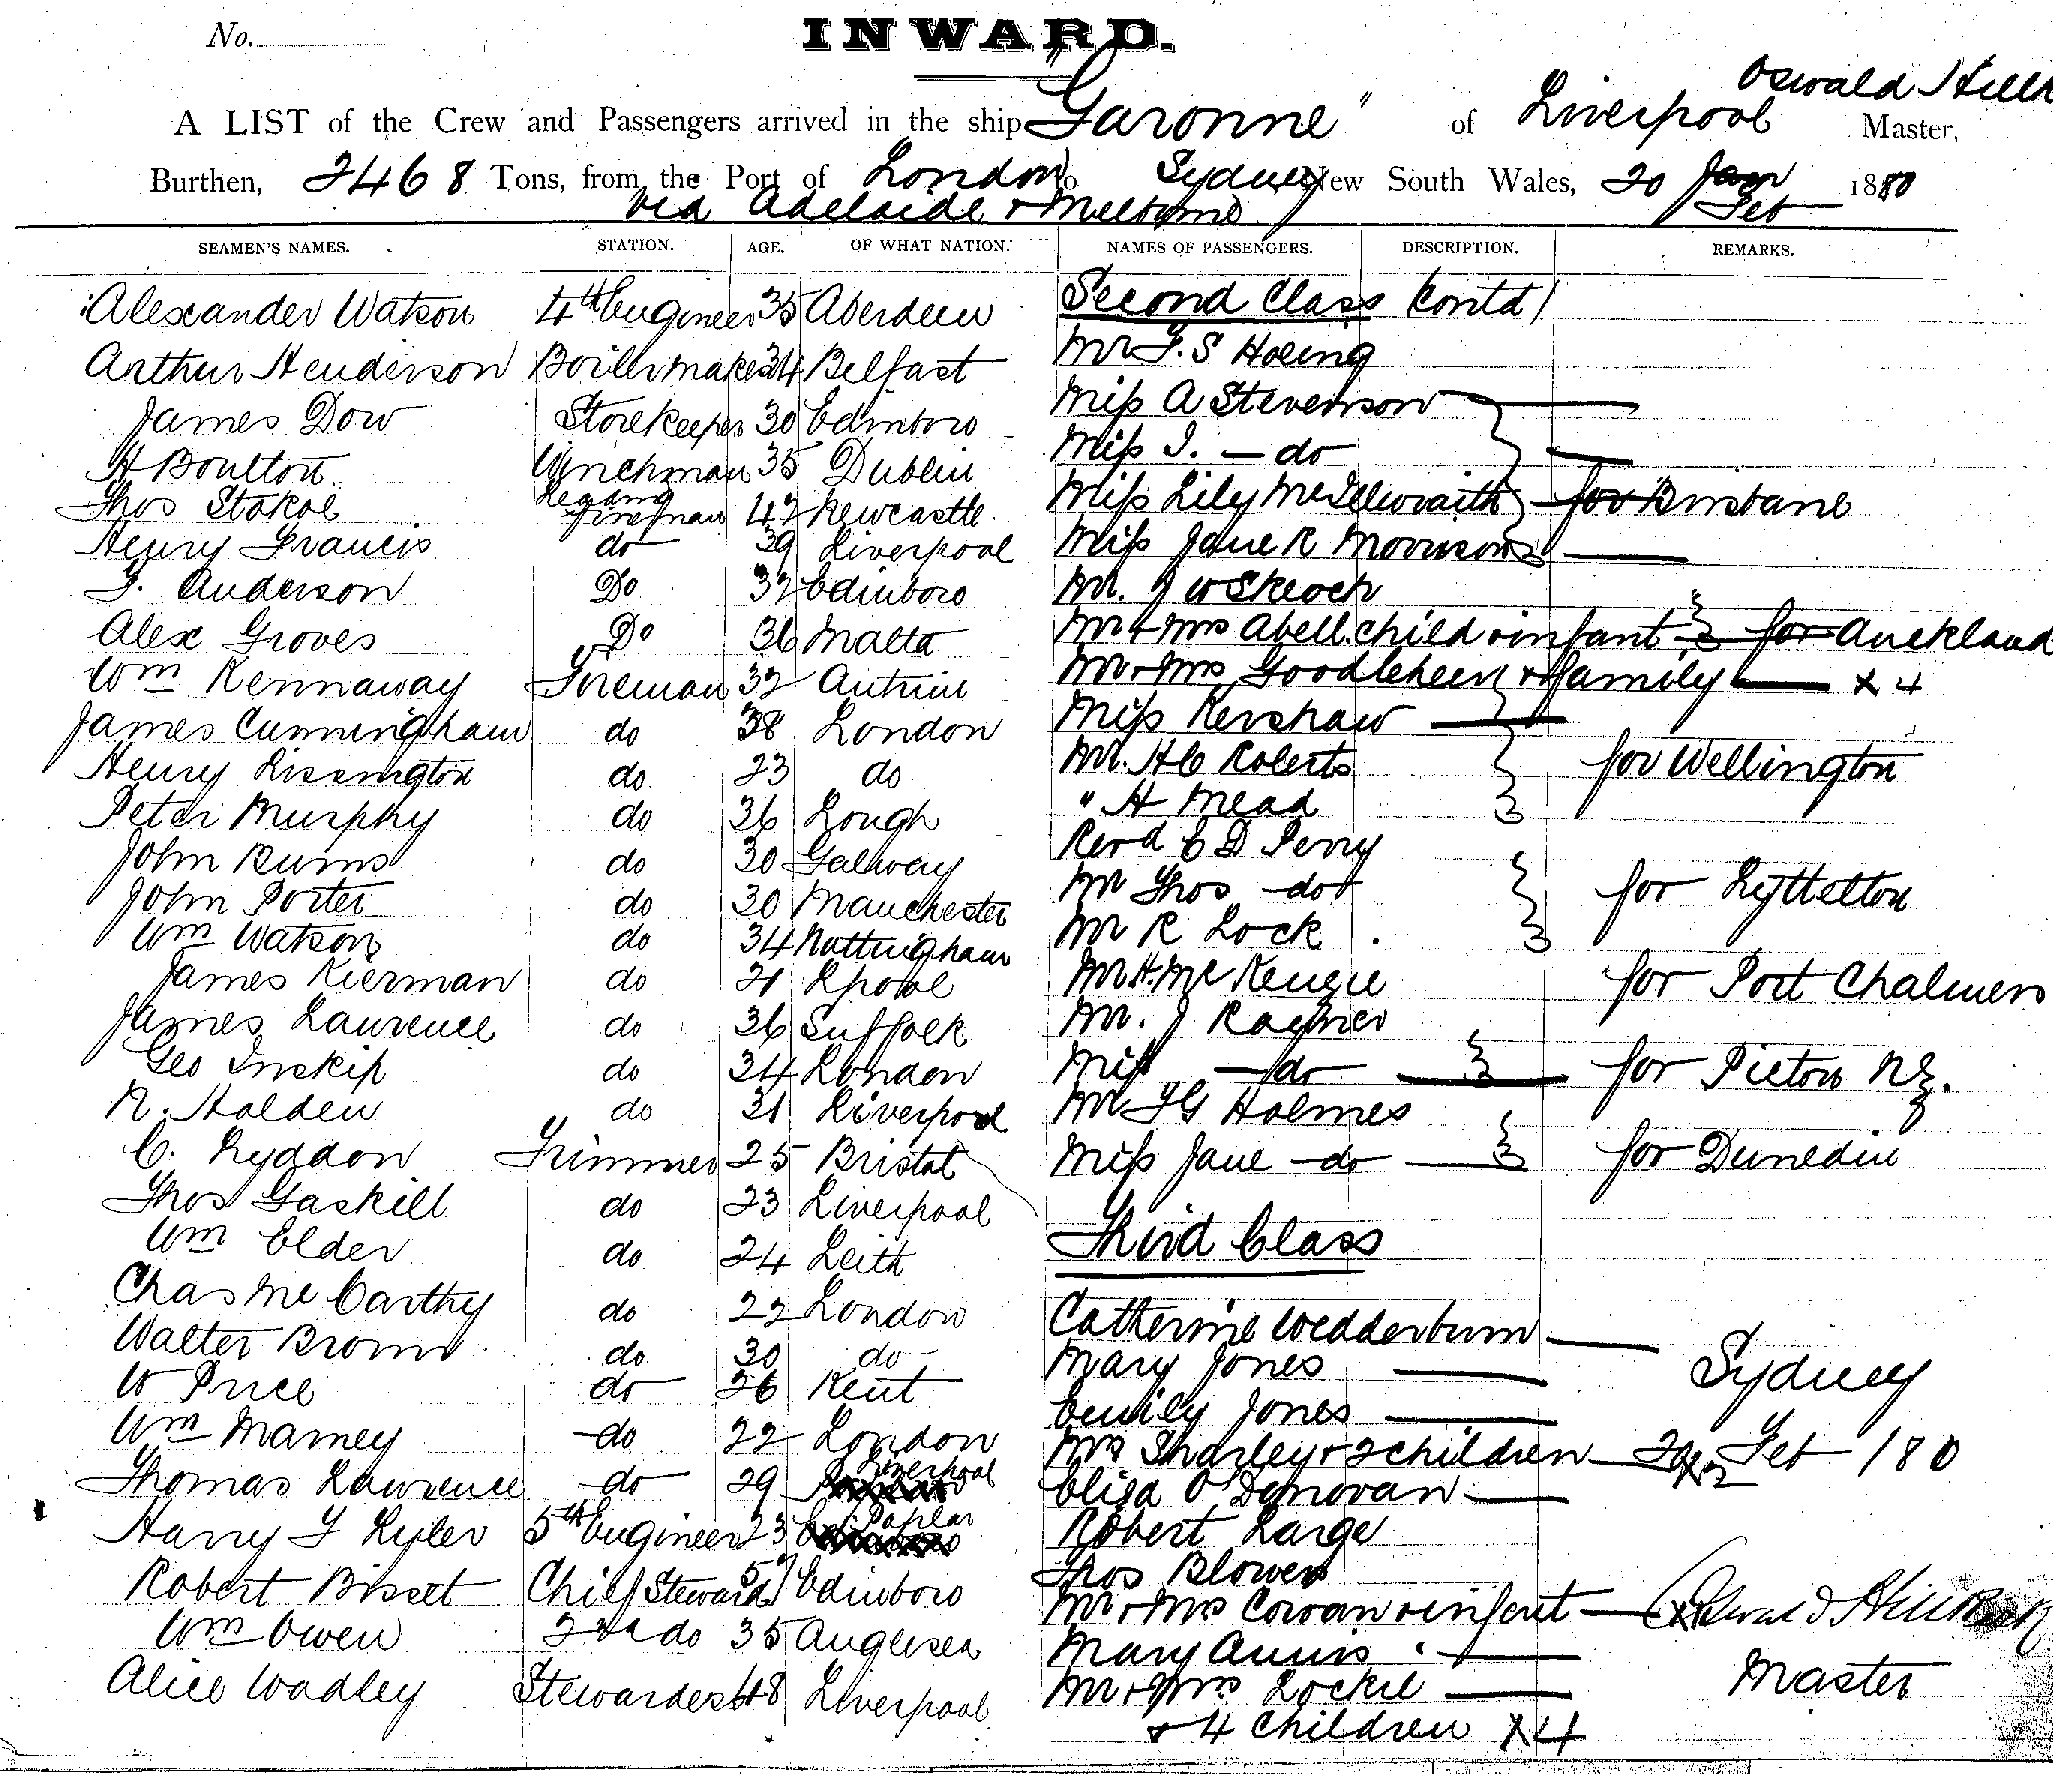 No.
INWARD.
Oswald
A LIST of the Crew and Passengers arrived in the ship "Garonne" of Liverpool Master,
Burthen, 2468 Tons, from the Port of London to Sydney New South Wales, 20 Feb 1880
via Adelaide & Melbourne
SEAMEN'S NAMES. STATION. AGE. OF WHAT NATION. NAMES OF PASSENGERS. DESCRIPTION. REMARKS.
Alexander Watson 4th Engineer 35 Aberdeen Second Class Contd/
Arthur Henderson Boilermaker 24 Belfast Mr S Hoeing
James Dow Storekeeper 30 Edinboro Miss A Stevenson
H Boulton Winchman 35 Dublin Miss I. - do
Thos Stokoe Leading Fireman 42 Newcastle Miss Lily McIllwraith for Brisbane
Henry Francis do 39 Liverpool Miss Jane R Morrison
Anderson Do 32 Edinboro Mr. J W Skeoch
Alex Groves Do 36 Malta Mr & Mrs Abell child & infant for Auckland
Wm Kennaway Fireman 32 Antrim Mr & Mrs & family x 4
James Cunningham do 38 London Miss Kershaw
Henry Lissington do 23 do Mr. HC Roberts for Wellington
Peter Murphy do 36 Lough " H Mead
John Burns do 30 Galway Revd C D Perry
John Porter do 30 Manchester Mr Thos - do for Lyttelton
Wm Watson do 34 Nottingham Mr R Lock
James Kierman do 21 Lpool Mr H. McKenzie for Port Chalmers
James Lawrence do 36 Suffolk Mr. J Rayner
Geo Inskip do 34 London Miss - do for Picton NZ.
R. Holden do 31 Liverpool Mr Holmes
C. Lyddon Trimmer 25 Bristol Miss Jane - do for Dunedin
Thos Gaskill do 23 Liverpool
Wm Elder do 24 Leith Third Class
Chas McCarthy do 22 London Catherine Wedderburn
Walter Brown do 30 do Mary Jones Sydney
W Price do 26 Kent Emily Jones
Wm Mamey do 22 London Mrs Sharley & 2 children Feb /80
Thomas Lawrence do 29 Liverpool Eliza O'Donovan
Harry Lyler 5th Engineer 23 Poplar Robert Large
Robert Bisset Chief Steward 57 Edinboro Thos Blower
Wm Owen 2nd do 35 Anglesea Mr & Mrs Cowan & infant
Mary Annis
Alice Wadley Stewardess 48 Liverpool Mr & Mrs Lockie Master
& 4 Children x4